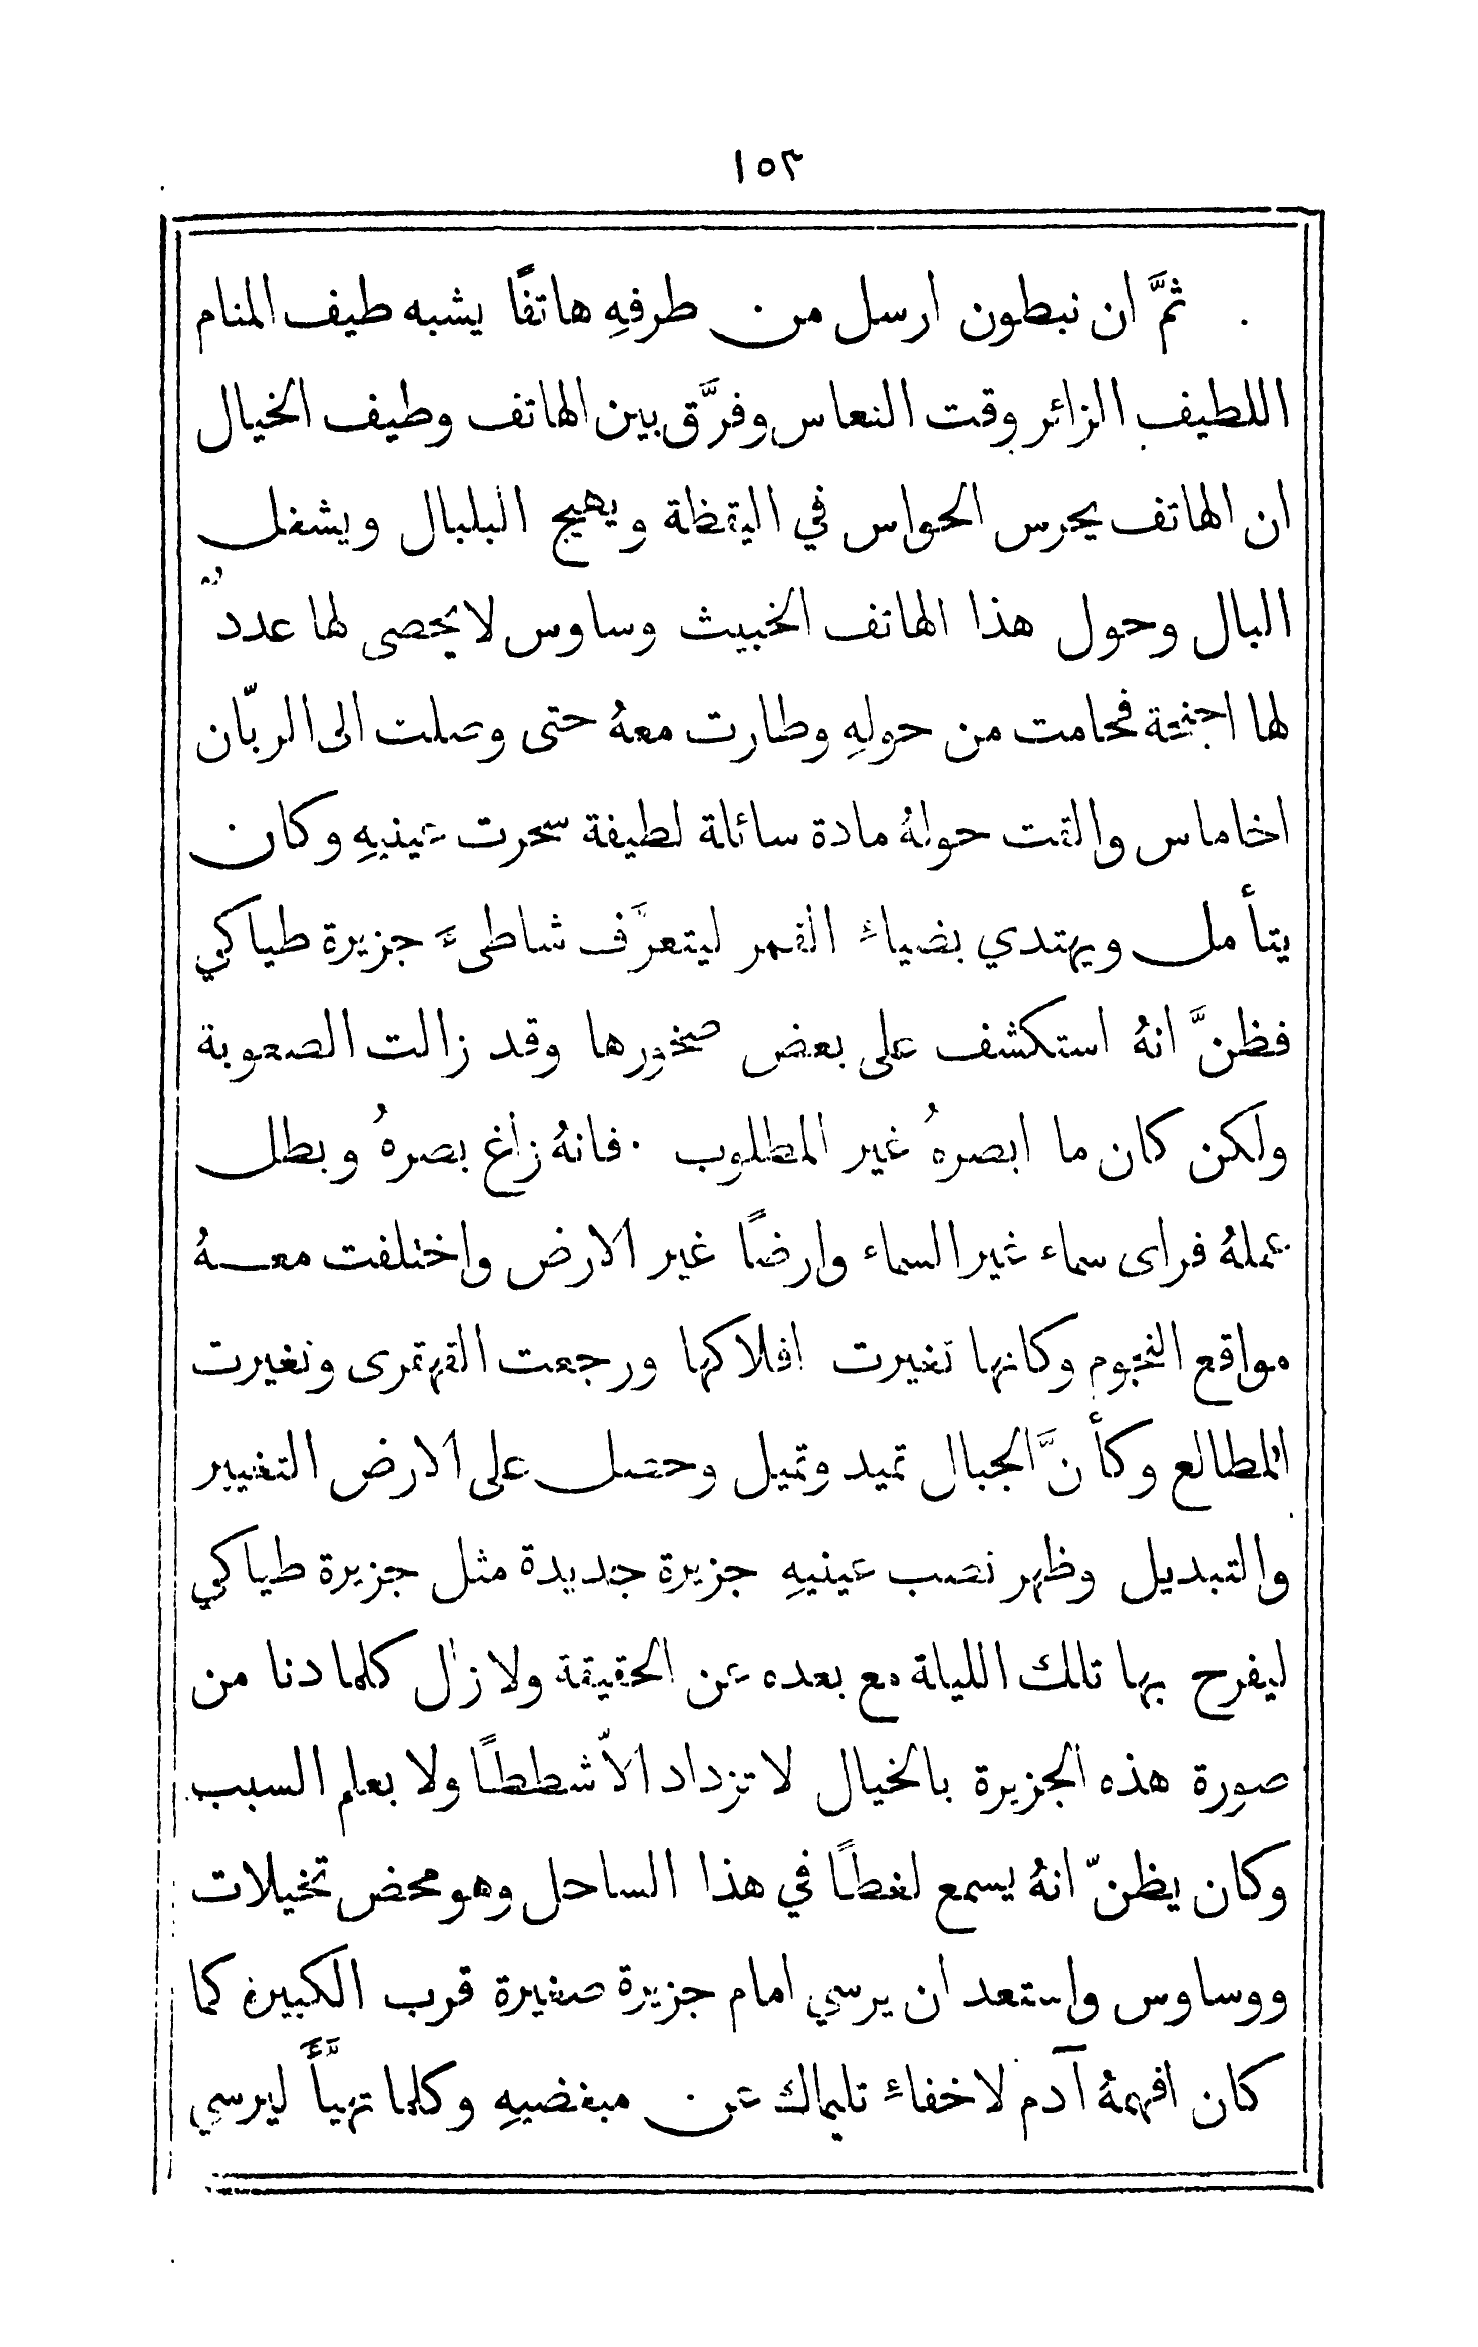 ١٥٣
ثمَّ ان نبطون ارسل من طرفهِ هاتفًا يشبه طيف المنام
اللطيف الزائر وقت النعاس وفرَّق بين الهاتف وطيف الخيال
ان الهاتف يحرس الحواس في اليقظة ويهيج البلبال ويشغل
البال وحول هذا الهاتف الخبيث وساوس لا يحصى لها عددٌ
لها اجنحة فحامت من حولهِ وطارت معهُ حتى وصلت الى الربّان
اخاماس والقت حولهُ مادة سائلة لطيفة سحرت عينيهِ وكان
يتأمل ويهتدي بضياء القمر ليتعرَّف شاطىءَ جزيرة طياكي
فظنَّ انهُ استكشف على بعض صخورها وقد زالت الصعوبة
ولكن كان ما ابصرهُ غير المطلوب ٠ فانهُ زاغ بصرهُ وبطل
عملهُ فراى سماء غير السماء وارضًا غير الارض واختلفت معهُ
مواقع النجوم وكانها تغيرت افلاكها ورجعت القهقرى وتغيرت
المطالع وكأنَّ الجبال تميد وتميل وحصل على الارض التغيير
والتبديل وظهر نصب عينيهِ جزيرة جديدة مثل جزيرة طياكي
ليفرح بها تلك الليلة مع بعده عن الحقيقة ولا زال كلما دنا من
صورة هذه الجزيرة بالخيال لا تزداد الاّ شططًا ولا يعلم السبب
وكان يظنّ انهُ يسمع لغطًا في هذا الساحل وهو محض تخيلات
ووساوس واستعد ان يرسي امام جزيرة صغيرة قرب الكبيرة كما
كان افهمهُ آدم لاخفاء تليماك عن مبغضيهِ وكلما تهيَّأَ ليرسي